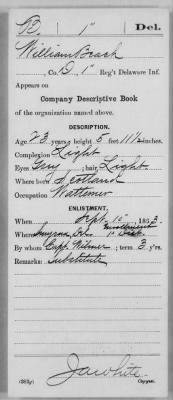 B | 1" | Del.
William Beach
, Co. D, 1" Reg't Delaware Inf.
Appears on
Company Descriptive Book
of the organization named above.
DESCRIPTION.
Age 23 years; height 5 feet 11½ inches.
Complexion Light
Eyes Grey; hair Light
Where born Scotland
Occupation
ENLISTMENT.
When Sept. 15", 1863.
Where Smyrna, Del. 1" Dist.
By whom Capt. Wilmer; term 3 y'rs.
Remarks: Substitute
J. A. White
(383g) Copyist.